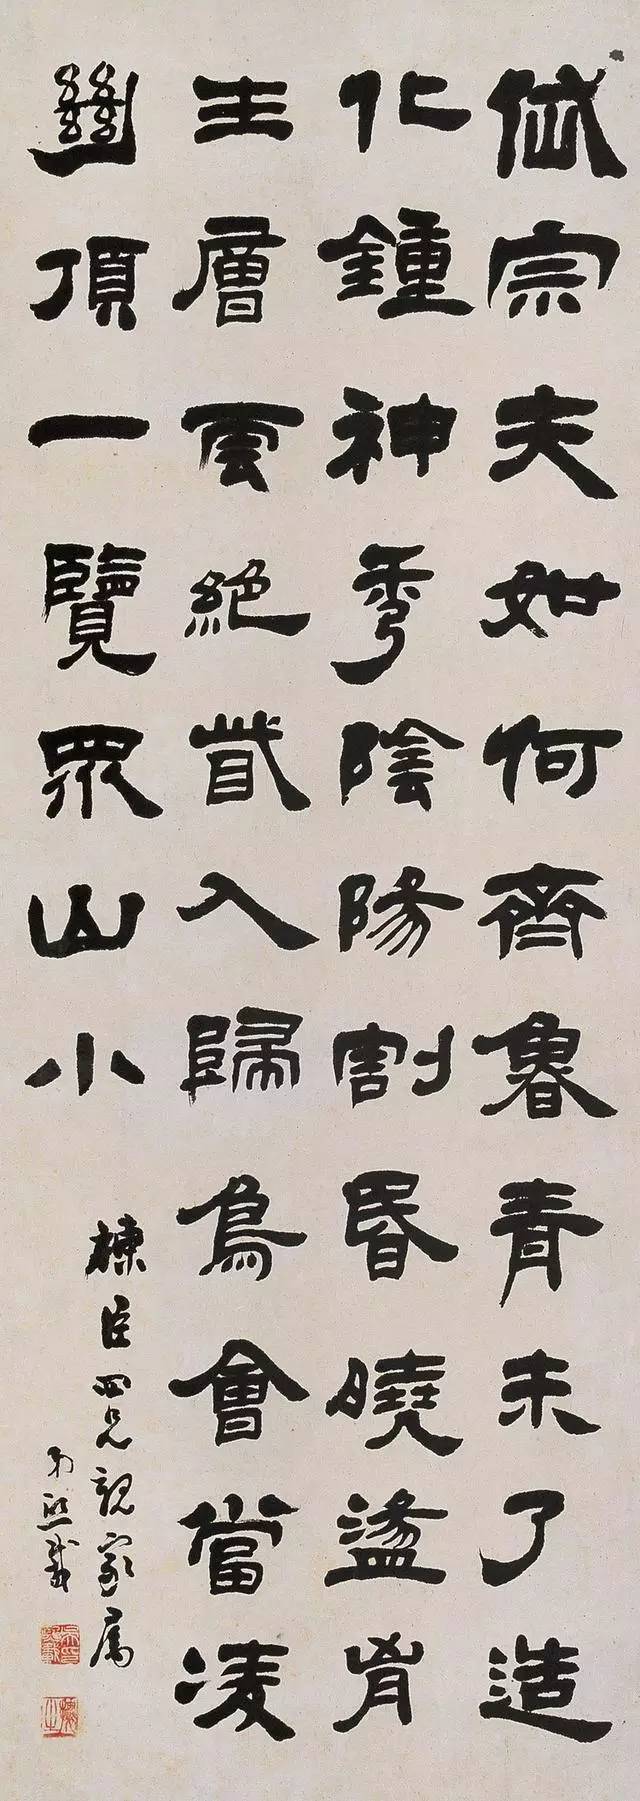 岱宗夫如何齊魯青未了造
化鍾神秀陰陽割昏曉盪胷
生層雲絕眥入歸鳥會當凌
𢇍頂一覽眾山小
棟臣四兄親家属
弟熙載